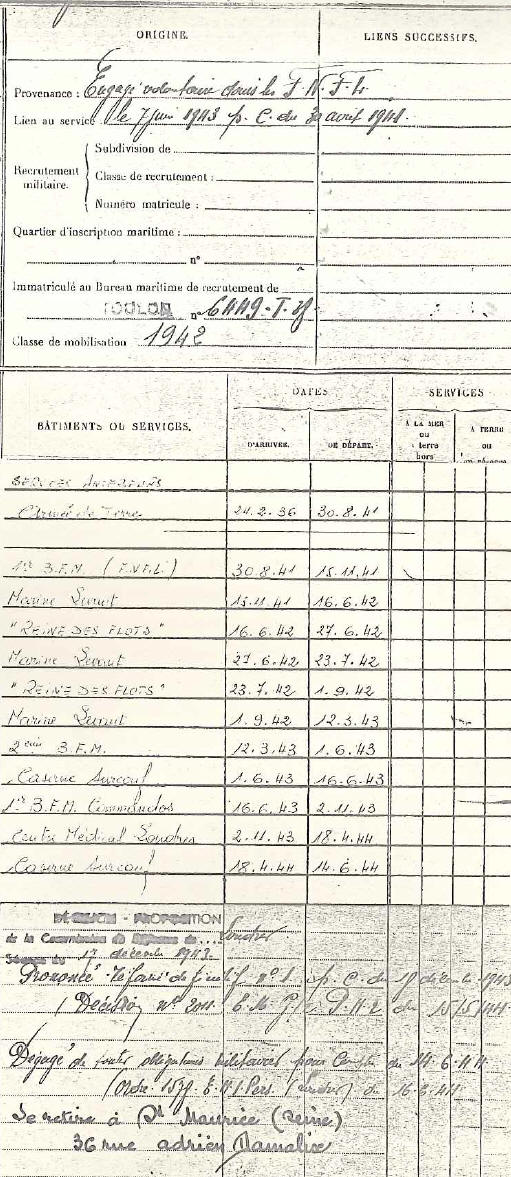 ORIGINE. LIENS SUCCESSIFS.
Provenance : Engagé volontaire dans les F. N. F. L.
Lien au service le 7 juin 1943 p. C. du avril 1941.
Recrutement militaire.
Subdivision de
Classe de recrutement :
Numéro matricule :
Quartier d'inscription maritime :
n°
Immatriculé au Bureau maritime de recrutement de
TOULON n° 6449-T-
Classe de mobilisation 1942
DATES SERVICES
BÂTIMENTS OU SERVICES. D'ARRIVÉE. DE DÉPART. A LA MER ou à terre hors A TERRE ou
SERVICES ANTERIEURS
Armée de Terre 24.2.36 30.8.41
1er B.F.M. (F.N.F.L.) 30.8.41 15.11.41
Marine Levant 15.11.41 16.6.42
"REINE DES FLOTS" 16.6.42 27.6.42
Marine Levant 27.6.42 23.7.42
"REINE DES FLOTS" 23.7.42 1.9.42
Marine Levant 1.9.42 12.3.43
2eme B.F.M. 12.3.43 1.6.43
Caserne Surcouf 1.6.43 16.6.43
1er B.F.M. Commandos 16.6.43 2.11.43
Centre Médical Londres 2.11.43 18.4.44
Caserne Surcouf 18.4.44 14.6.44
DÉCISION - PROPOSITION
de la Commission de Réforme de... Londres
Séance du 17 décembre 1943.
Prononcé Réforme définitif n° 1. p. C. du décembre 1943
(Décision n° 2011 E.M.G. du 15/5/44
Dégagé de toutes obligations militaires pour compter du 14-6-44
(Ordre E.M. 1 Pers. (Londres) du
Se retire à St Maurice (Seine)
36 rue adrien Damalix